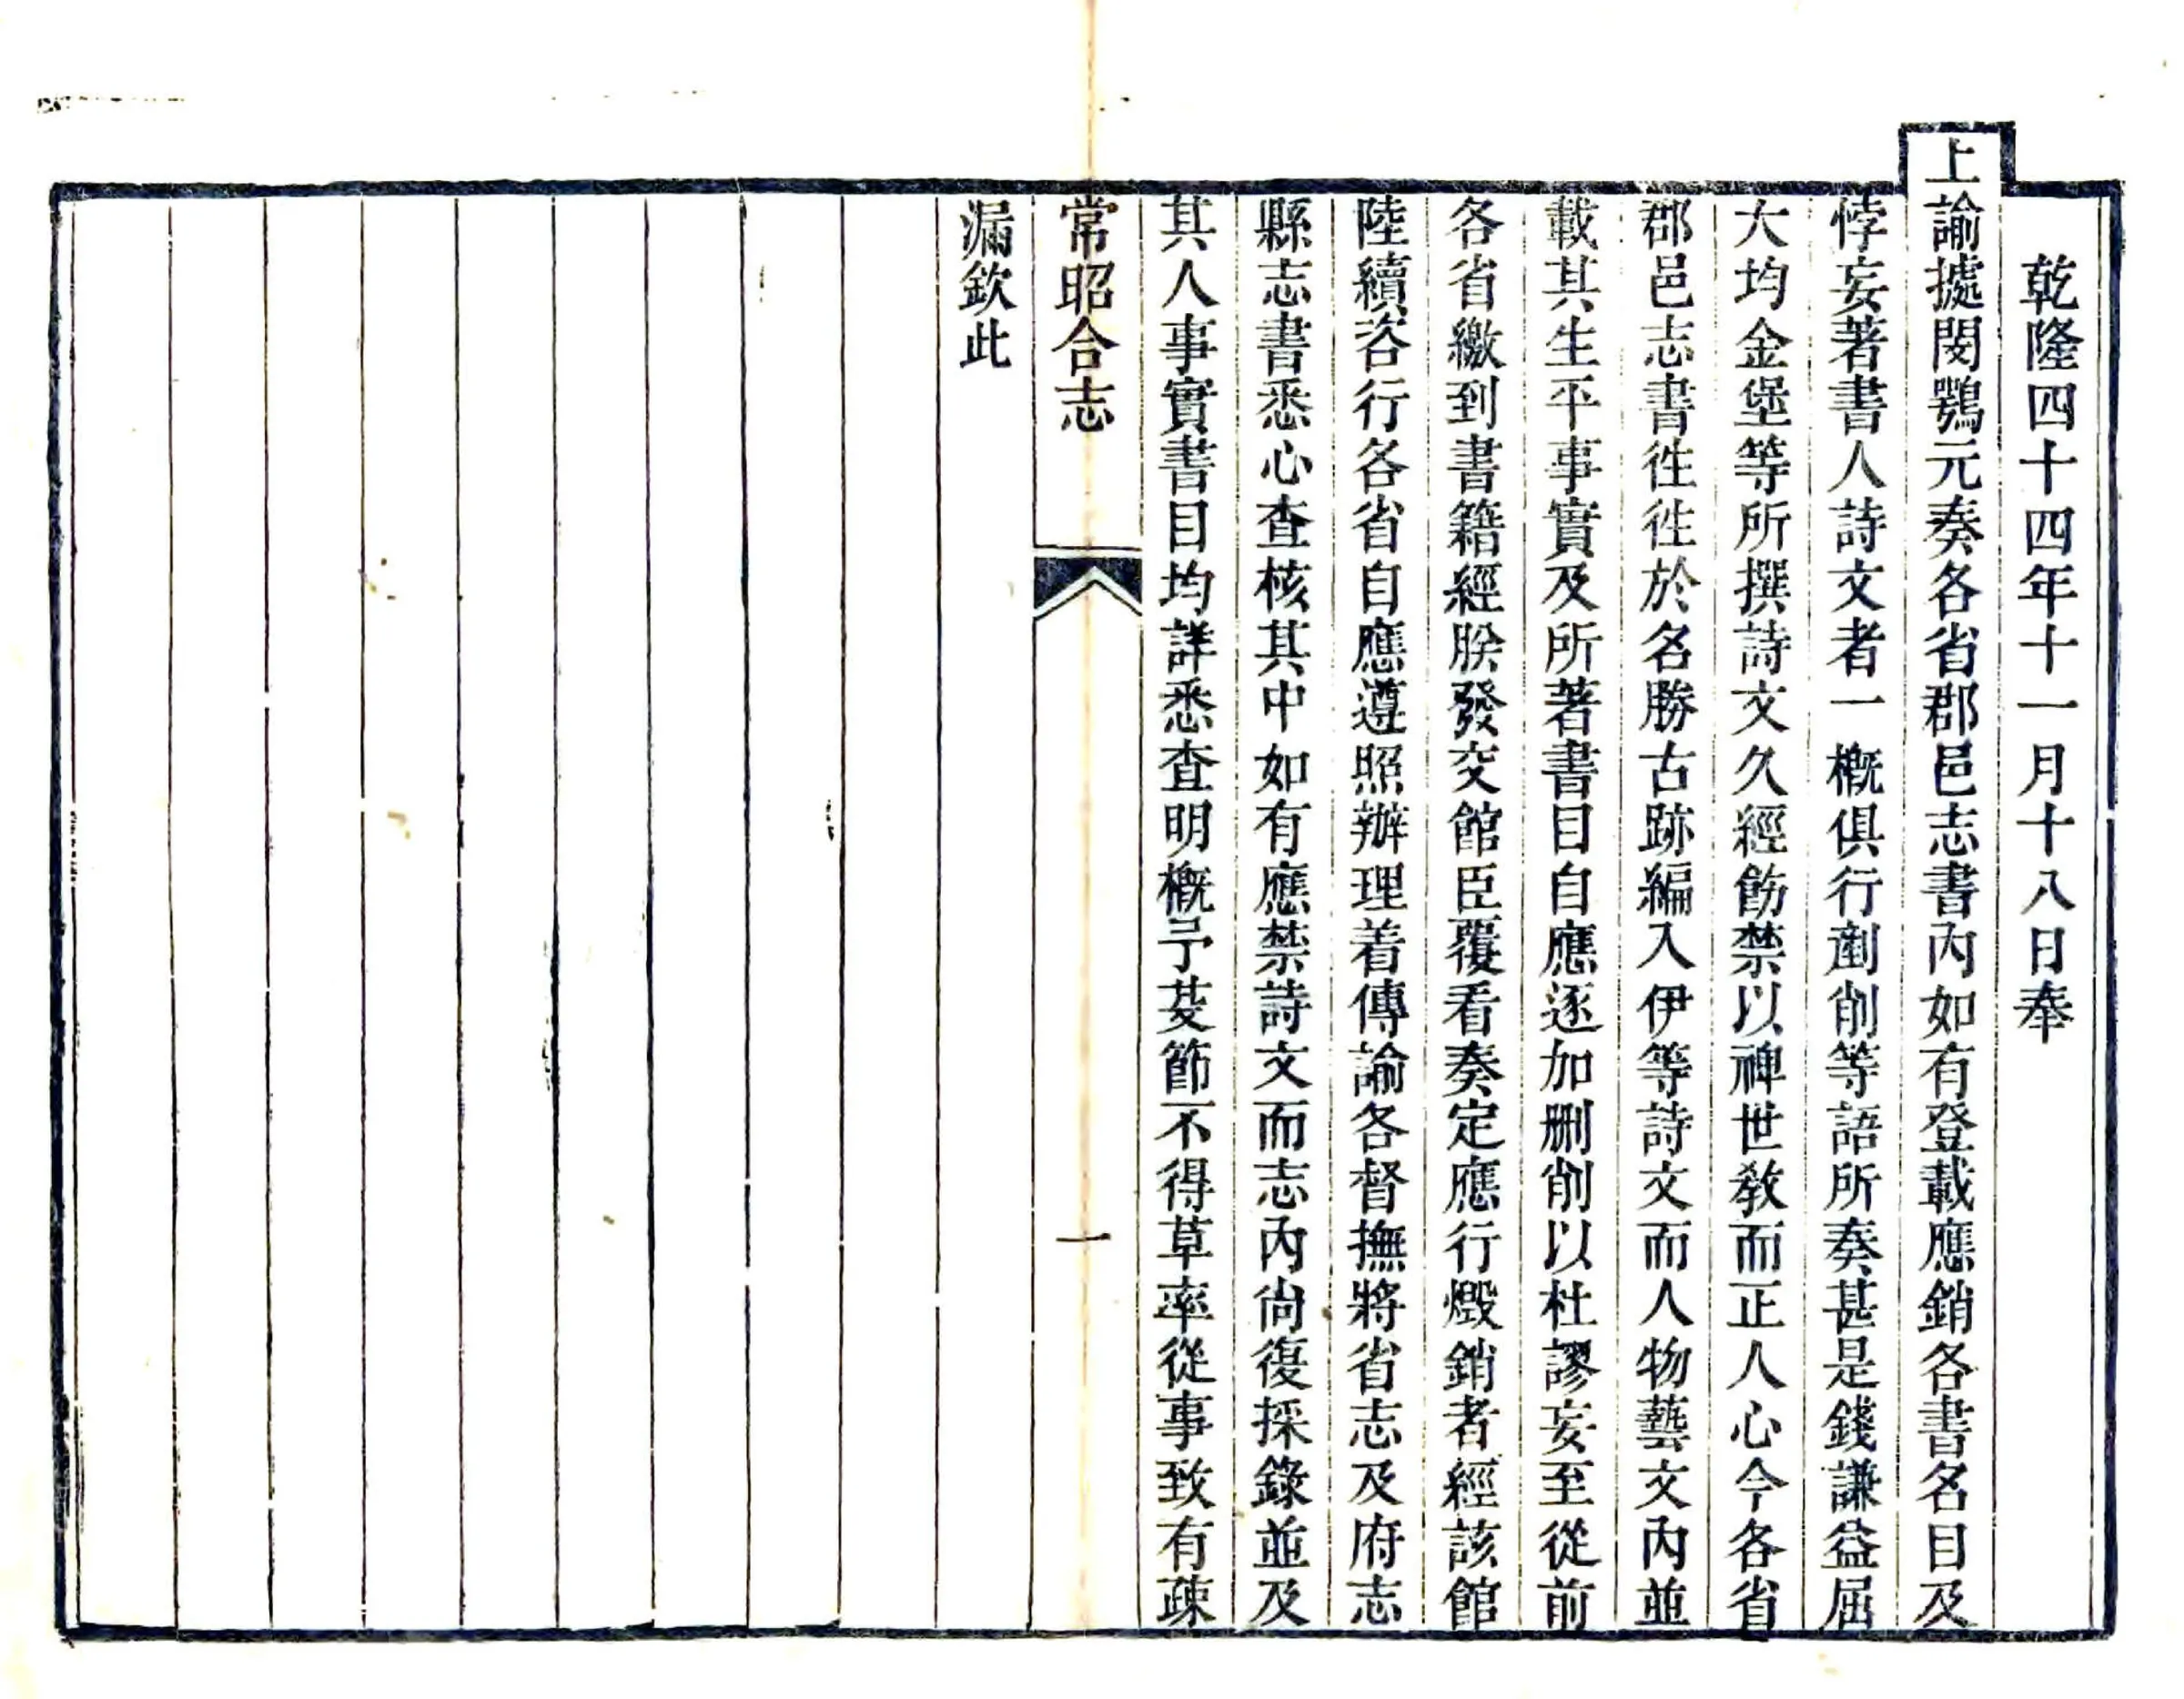 乾隆四十四年十一月十八日奉
上諭據閔鶚元奏各省郡邑志書內如有登載應銷各書名目及
悖妄著書人詩文者一概俱行剷削等語所奏甚是錢謙益屈
大均金堡等所撰詩文久經飭禁以裨世教而正人心今各省
郡邑志書往往於名勝古跡編入伊等詩文而人物藝文內並
載其生平事實及所著書目自應逐加刪削以杜謬妄至從前
各省繳到書籍經朕發交館臣覆看奏定應行燬銷者經該館
陸續咨行各省自應遵照辦理着傳諭各督撫將省志及府志
縣志書悉心查核其中如有應禁詩文而志內尚復採錄並及
其人事實書目均詳悉查明概予芟節不得草率從事致有疎
常昭合志 一
漏欽此